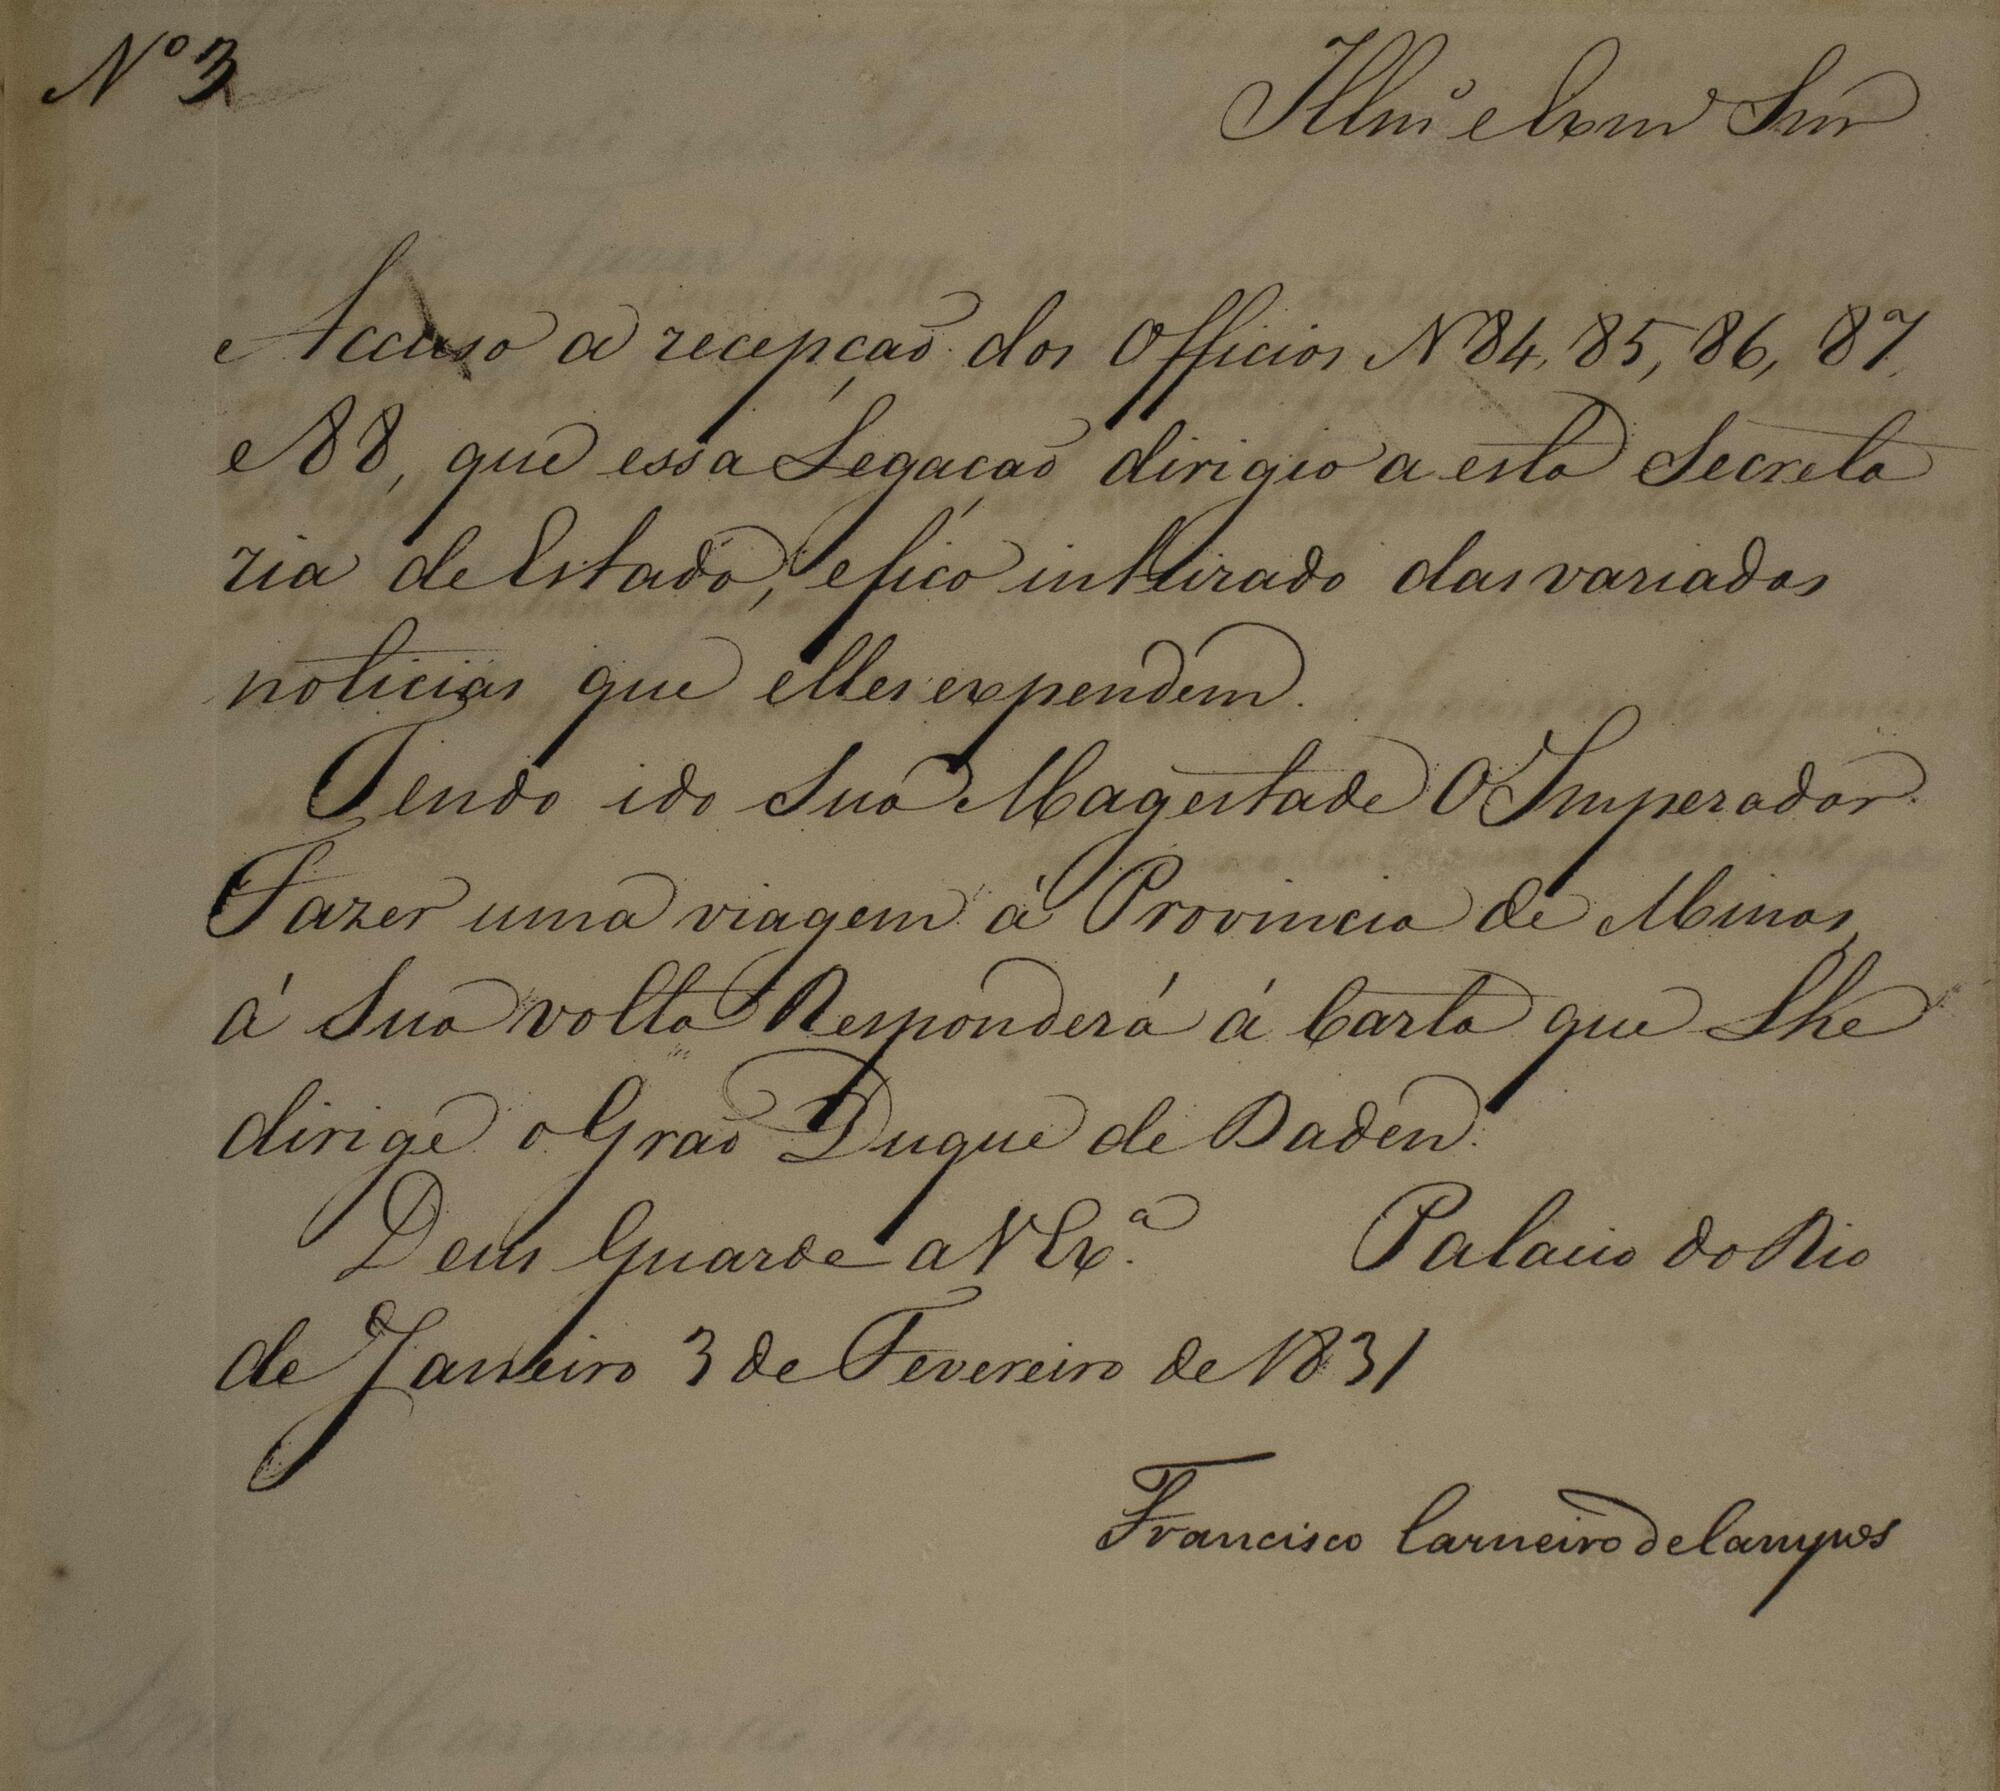 Nº 3
Illmº e Exmº Snr
Accuso a recepção dos Officios N 84, 85, 86, 87,
e 88, que essa Legação dirigio a esta Secreta
ria de Estado, e fico inteirado das variadas
noticias que elles expendem.
Tendo ido Sua Magestade O Imperador
Fazer uma viagem á Provincia de Minas,
á Sua volta Responderá á Carta que Lhe
dirige o Grão Duque de Baden.
Deus Guarde a V Exª. Palacio do Rio
de Janeiro 3 de Fevereiro de 1831
Francisco Carneiro de Campos